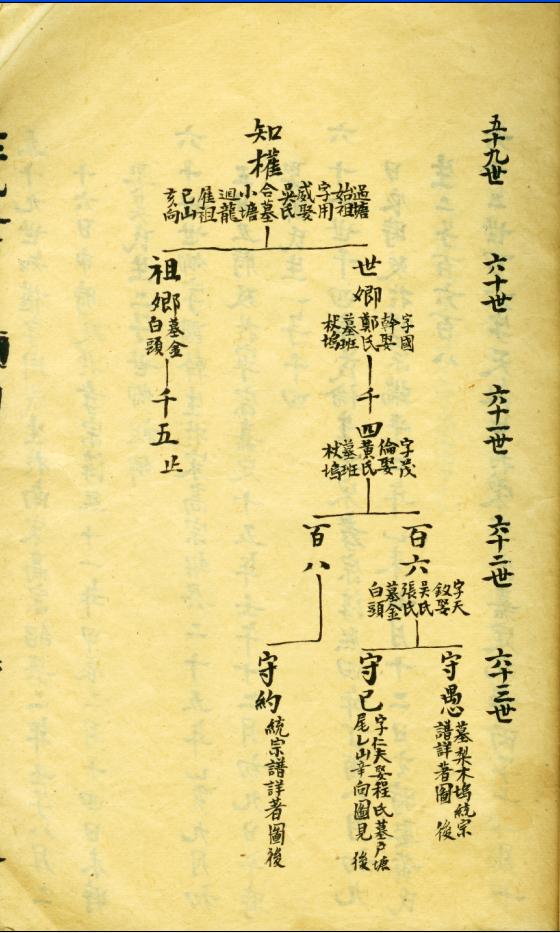 五十九世
知權
過塘
始祖
字用
威娶
吳氏
合墓
小塘
迴龍
祖
巳山
亥向
六十世
世鄉
字國
幹娶
鄭氏
墓班
杖塢
祖鄉
墓金
白頭
六十一世
千四
字茂
倫娶
黃氏
墓班
杖塢
千五
止
六十二世
百六
字天
娶
吳氏
張氏
墓金
白頭
百八
六十三世
守愚
墓梨木塢統宗
譜詳著圖後
守己
字仁夫娶程氏墓戶塘
尾山辛向圖見後
守約
統宗譜詳著圖後